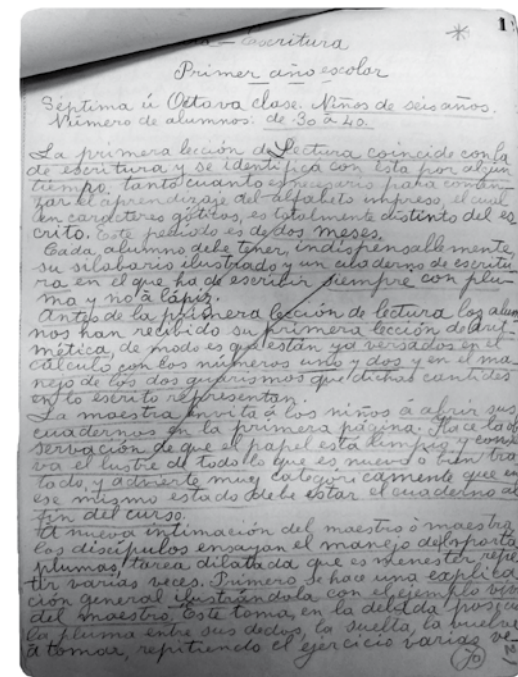 — Escritura
1
Primer año escolar
Séptima ú Octava clase. Niños de seis años.
Número de alumnos: de 30 à 40.
La primera lección de Lectura coincide con la
de escritura y se identifica con ésta por algún
tiempo, tanto cuanto es necesario para comen
zar el aprendizaje del alfabeto impreso, el cual
en caracteres góticos, es totalmente distinto del es
crito. Este período es de dos meses.
Cada alumno debe tener, indispensablemente,
su silabario ilustrado y un cuaderno de escritu
ra en el que ha de escribir siempre con plu
ma y no à lápiz.
Antes de la primera lección de lectura los alum
nos han recibido su primera lección de arit
mética, de modo es que están ya versados en el
cálculo con los números uno y dos y en el ma
nejo de los dos guarismos que dichas cantides
en lo escrito representan.
La maestra invita á los niños á abrir sus
cuadernos en la primera página. Hace la ob
servación de que el papel está limpio y conser
va el lustre de todo lo que es nuevo ó bien tra
tado, y advierte muy categoricamente que en
ese mismo estado debe estar el cuaderno al
fin del curso.
A nueva intimación del maestro ò maestra,
los discípulos ensayan el manejo del porta
plumas, tarea dilatada que es menester repe
tir varias veces. Primero se hace una explica
ción general ilustrándola con el ejemplo vivo
del maestro. Éste toma, en la debida posición
la pluma entre sus dedos, la suelta, la vuelve
à tomar, repitiendo el ejercicio varias ve